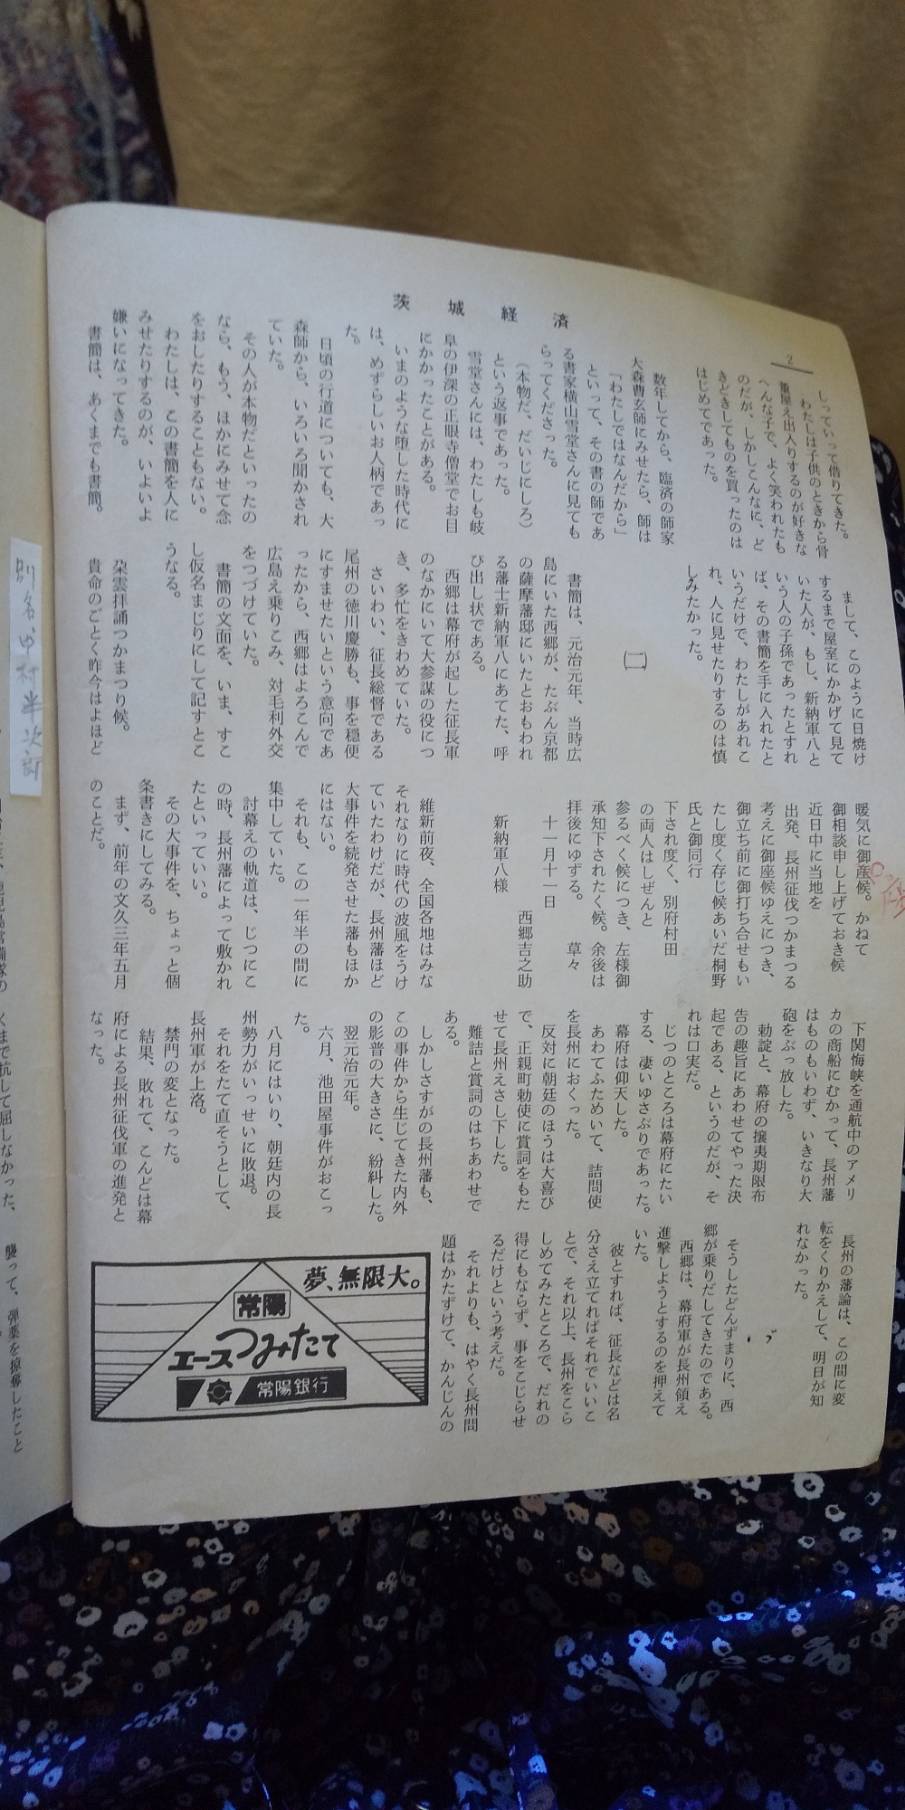 茨城経済
2
しっていって借りてきた。
わたしは子供のときから骨
董屋え出入りするのが好きな
へんな子で、よく笑われたも
のだが、しかしこんなに、ど
きどきしてものを買ったのは
はじめてであった。
数年してから、臨済の師家
大森曹玄師にみせたら、師は
「わたしではなんだから」
といって、その書の師であ
る書家横山雪堂さんに見ても
らってくださった。
(本物だ、だいじにしろ)
という返事であった。
雪堂さんには、わたしも岐
阜の伊深の正眼寺僧堂でお目
にかかったことがある。
いまのような堕した時代に
は、めずらしいお人柄であっ
た。
日頃の行道についても、大
森師から、いろいろ聞かされ
ていた。
その人が本物だといったの
なら、もう、ほかにみせて念
をおしたりすることもない。
わたしは、この書簡を人に
みせたりするのが、いよいよ
嫌いになってきた。
書簡は、あくまでも書簡。
まして、このように日焼け
するまで屋室にかかげて見て
いた人が、もし、新納軍八と
いう人の子孫であったとすれ
ば、その書簡を手に入れたと
いうだけで、わたしがあれこ
れ、人に見せたりするのは慎
しみたかった。
(二)
書簡は、元治元年、当時広
島にいた西郷が、たぶん京都
の薩摩藩邸にいたとおもわれ
る藩士新納軍八にあてた、呼
び出し状である。
西郷は幕府が起した征長軍
のなかにいて大参謀の役につ
き、多忙をきわめていた。
さいわい、征長総督である
尾州の徳川慶勝も、事を穏便
にすませたいという意向であ
ったから、西郷はよろこんで
広島え乗りこみ、対毛利外交
をつづけていた。
書簡の文面を、いま、すこ
し仮名まじりにして記すとこ
うなる。
朶雲拝誦つかまつり候。
貴命のごとく昨今はよほど
暖気に御座候。かねて
御相談申し上げておき候
近日中に当地を
出発、長州征伐つかまつる
考えに御座候ゆえにつき、
御立ち前に御打ち合せもい
たし度く存じ候あいだ桐野
氏と御同行
下され度く、別府村田
の両人はしぜんと
参るべく候につき、左様御
承知下されたく候。余後は
拝後にゆずる。 草々
十一月十一日
西郷吉之助
新納軍八様
維新前夜、全国各地はみな
それなりに時代の波風をうけ
ていたわけだが、長州藩ほど
大事件を続発させた藩もほか
にはない。
それも、この一年半の間に
集中していた。
討幕えの軌道は、じつにこ
の時、長州藩によって敷かれ
たといっていい。
その大事件を、ちょっと個
条書きにしてみる。
まず、前年の文久三年五月
のことだ。
下関海峡を通航中のアメリ
カの商船にむかって、長州藩
はものもいわず、いきなり大
砲をぶっ放した。
勅諚と、幕府の攘夷期限布
告の趣旨にあわせてやった決
起である、というのだが、そ
れは口実だ。
じつのところは幕府にたい
する、凄いゆさぶりであった。
幕府は仰天した。
あわてふためいて、詰問使
を長州におくった。
反対に朝廷のほうは大喜び
で、正親町勅使に賞詞をもた
せて長州えさし下した。
難詰と賞詞のはちあわせで
ある。
しかしさすがの長州藩も、
この事件から生じてきた内外
の影普の大きさに、紛糾した。
翌元治元年。
六月、池田屋事件がおこっ
た。
八月にはいり、朝廷内の長
州勢力がいっせいに敗退。
それをたて直そうとして、
長州軍が上洛。
禁門の変となった。
結果、敗れて、こんどは幕
府による長州征伐軍の進発と
なった。
長州の藩論は、この間に変
転をくりかえして、明日が知
れなかった。
そうしたどんずまりに、西
郷が乗りだしてきたのである。
西郷は、幕府軍が長州領え
進撃しようとするのを押えて
いた。
彼とすれば、征長などは名
分さえ立てればそれでいいこ
とで、それ以上、長州をこら
しめてみたところで、だれの
得にもならず、事をこじらせ
るだけという考えだ。
それよりも、はやく長州問
題はかたずけて、かんじんの
夢、無限大。
常陽
エースつみたて
常陽銀行
別名中村半次郎
くまで抗して屈しなかった、
襲って、弾薬を掠奪したこと